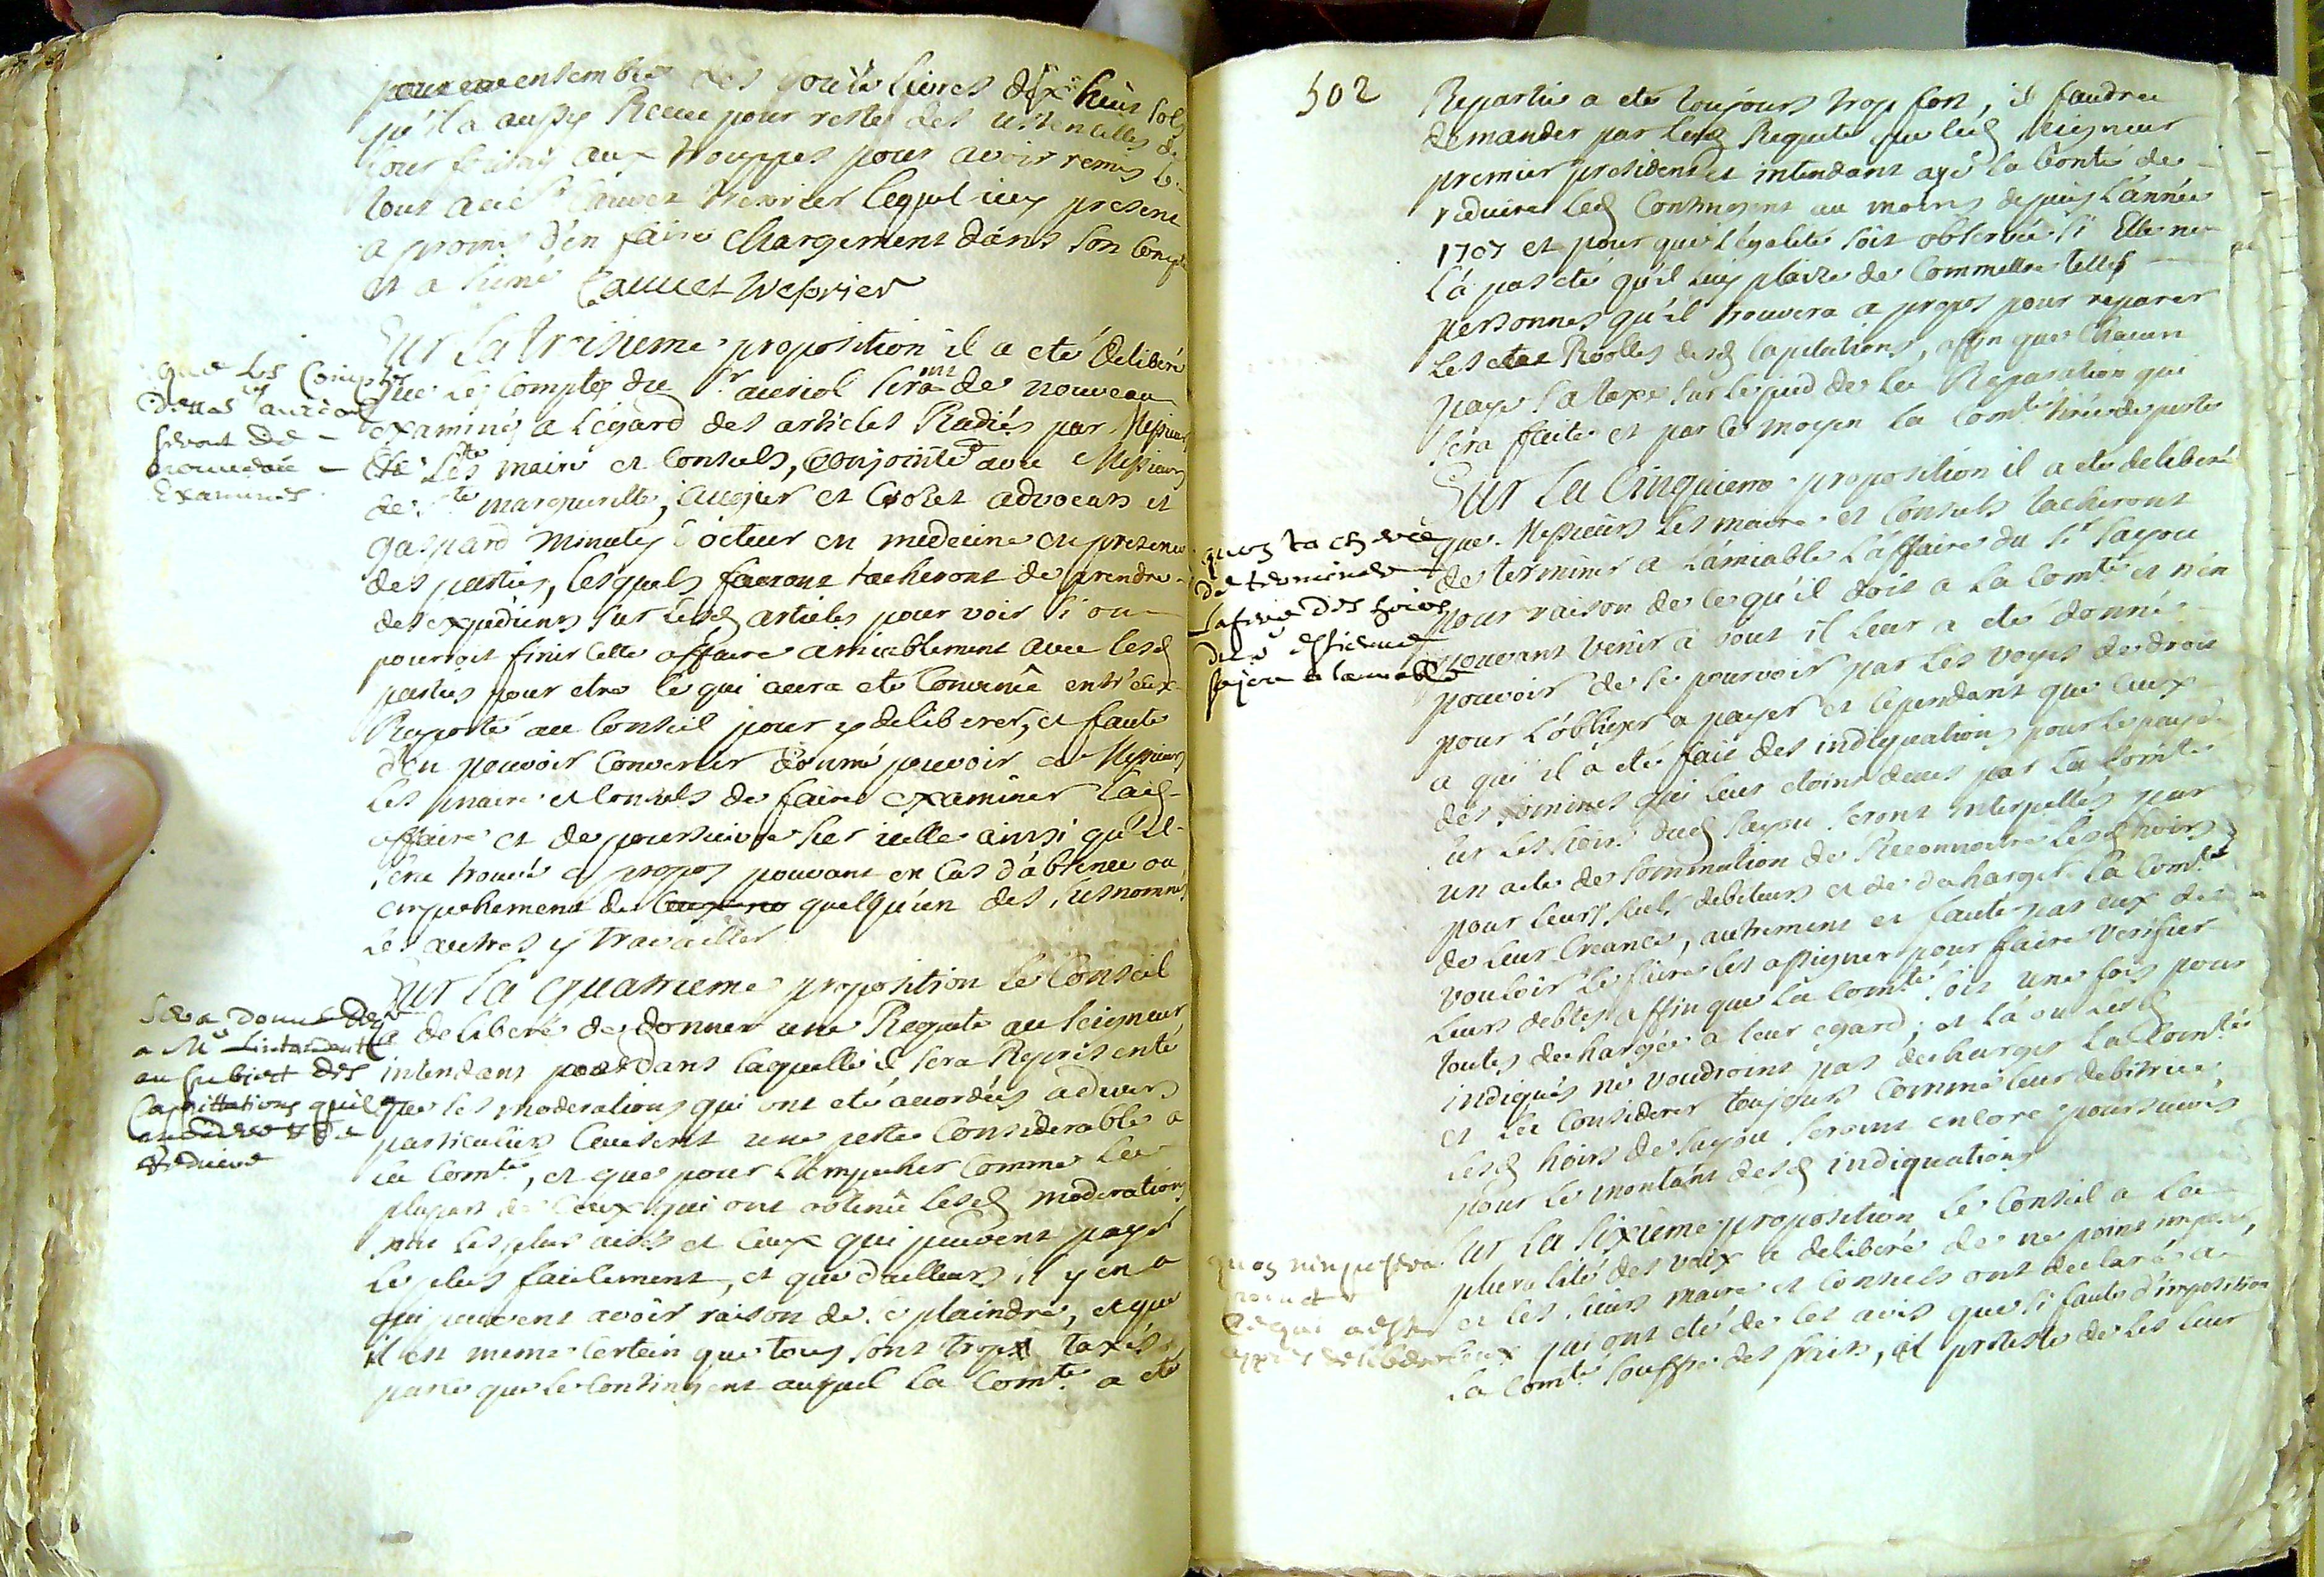 ensemble les livres dix huit sols
qu'il a aussy Receu pour reste des ustencilles de
four aux trouppes pour avoir remis le
tout au Sr Cauvet Tresorier lequel icy present
a promis d'en faire Chargement dans son Compte
et a signé Cauvet tresorier
Sur la troisieme proposition il a eté deliberé
que les Comptes du Sr auriol seront de nouveau
examinés a l'égard des articles Radiés par Messieurs
Les maire et Consuls, Conjointt avec Messieurs
de Ste marguerite, augier et advocats et
gaspard Minuty docteur en medecine en presence
des parties, lesquels tacheront de prendre
des expediens sur lesd articles pour voir si on
pourroit finir cette affaire amiablement avec lesd
parties pour etre ce qui aura eté Convenû entr'eux
Raporté au Conseil pour y deliberer, et faute
d'en pouvoir Convenir donné pouvoir a Messieurs
Les maire et Consuls de faire examiner lad
affaire et de poursuivre sur icelle ainsi qu'il
sera trouvé a propos pouvant en Cas d'absence ou
empechement de quelqu'un des susnommés
Les autres y travailler
Sur la quatrieme proposition le Conseil
a deliberé de donner une Requete au seigneur
intendant dans laquelle il sera Representé
que les moderations qui ont eté accordées a divers
particuliers Causent une perte Considerable a
la Comté, et que pour l'empecher Comme la
plupart de Ceux qui ont obtenû lesd moderations
sont les plus aisés et Ceux qui peuvent payé
le plus facilement, et que d'ailleurs il y en a
qui peuvent avoir raison de se plaindre, et que
il est meme Certain que tous sont trop taxés
parce que le Contingent auquel la Comté a eté
que les Comptes
auriol
seront de
nouveau
Examines
Sera donné
a Mr Lintandent
au subiect des
Capittations quil
Reduire
502
Repartie a eté toujours trop fort, il faudra
demander par lad Requete que led seigneur
premier president et intendant ayé la bonté de
reduire led Contingent au moins depuis l'année
1707 et pour que l'égalité soit observée si Elle ne
l'a pas eté qu'il luy plaise de Commettre telles
personnes qu'il trouvera a propos pour reparer
Les Roolles desd Capitations, affin que Chacun
paye sa taxe sur le pied de la Reparation qui
sera faite et par ce moyen la Comté tirée de perte
Sur la Cinquieme proposition il a eté deliberé
que Messieurs Les maire et Consuls tacheront
de terminer a l'amiable l'affaire du Sr sayou
pour raison de ce qu'il doit a la Comté et n'en
pouvant venir a bout il leur a eté donné
pouvoir de se pourvoir par les voyes de droit
pour l'obliger a payer et Cependant que Ceux
a qui il a eté fait des indiquations pour le payt
des sommes qui leur etoint deues par la Comté
sur les hoirs dud sayou seront interpellés par
un acte de sommation de Reconnoitre lesd hoirs
pour leurs seuls debiteurs et de decharger la Comté
de leur Creance, autrement et faute par eux de
vouloir le faire les assigner pour faire verifier
leurs debtes affin que la Comté soit une fois pour
toutes dechargée a leur egard; et la ou lesd
indiqués ne voudroint pas decharger la Comté
et la Considerer toujours Comme leur debitrice,
Lesd hoirs de sayou seront encore poursuivis
pour le montant desd indiquations
Sur la sixieme proposition le Conseil a la
pluralité des voix a deliberé de ne point imposer,
et les sieurs maire et Consuls ont declaré a
Ceux qui ont eté de cet avis que si faute d'imposition
la Comté souffre des frais, il proteste de les leur
quon tachera
de terminer
lafere des hoirs
de
sajou a lamiable
quon nimposera